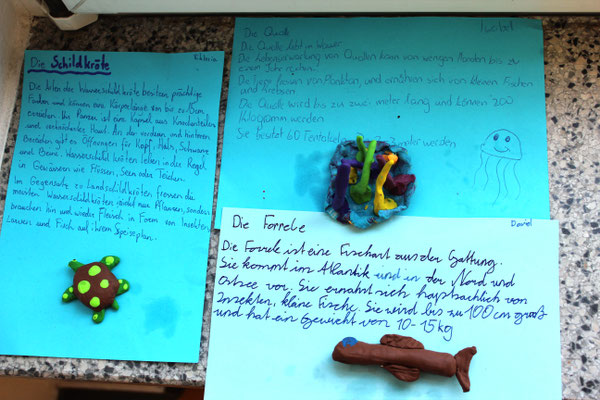 Die Schildkröte
Viktoria
Die Arten der Wasserschildkröte besitzen prächtige
Farben und können eine Körperlänge von bis zu 15cm
erreichen. Ihr Panzer ist eine Kapsel aus Knochenteilen
und verhärteter Haut. An der vorderen und hinteren
Bereichen gibt es Öffnungen für Kopf, Hals, Schwanz
und Beine. Wasserschildkröten leben in der Regel
in Gewässern wie Flüssen, Seen oder Teichen.
Im Gegensatz zu Landschildkröten fressen die
meisten Wasserschildkröten nicht nur Pflanzen, sondern
brauchen hin und wieder Fleisch in Form von Insekten,
Larven und Fisch auf ihrem Speiseplan.
Die Qualle
Die Qualle lebt im Wasser
Die Lebenserwartung von Quallen kann von wenigen Monaten bis zu
einem Jahr reichen.
Die Tiere fressen von Plankton, und ernähren sich von kleinen Fischen
und Krebsen
Die Qualle wird bis zu zwei meter lang und kann 200
Kilogramm werden
Sie besitzt 60 meter werden
Die Forrele
Daniel
Die Forrele ist eine Fischart aus der Gattung.
Sie kommt im Atlantik und in der Nord und
Ostsee vor. Sie ernährt sich haptsächlich von
Insekten, kleine Fische. Sie wird bis zu 100 cm groß
und hat ein Gewicht von 10-15 kg